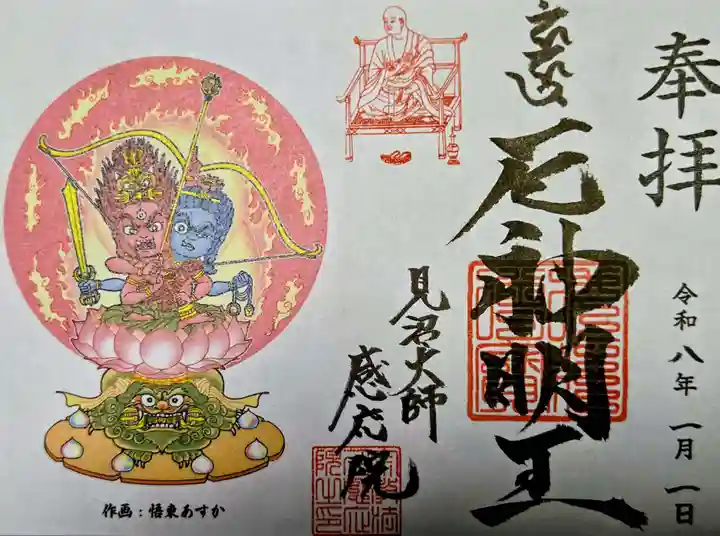 奉拝
厄神明王
令和八年 一月一日
見沼大師
感応院
作画：悟東あすか